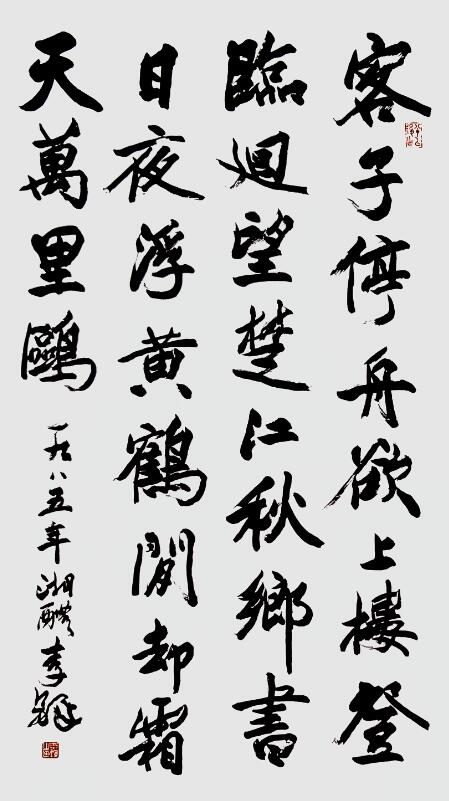 客子停舟欲上樓登
臨迴望楚江秋鄉書
日夜浮黃鶴閒却霜
天萬里鷗
一九八五年湘醴李鐸